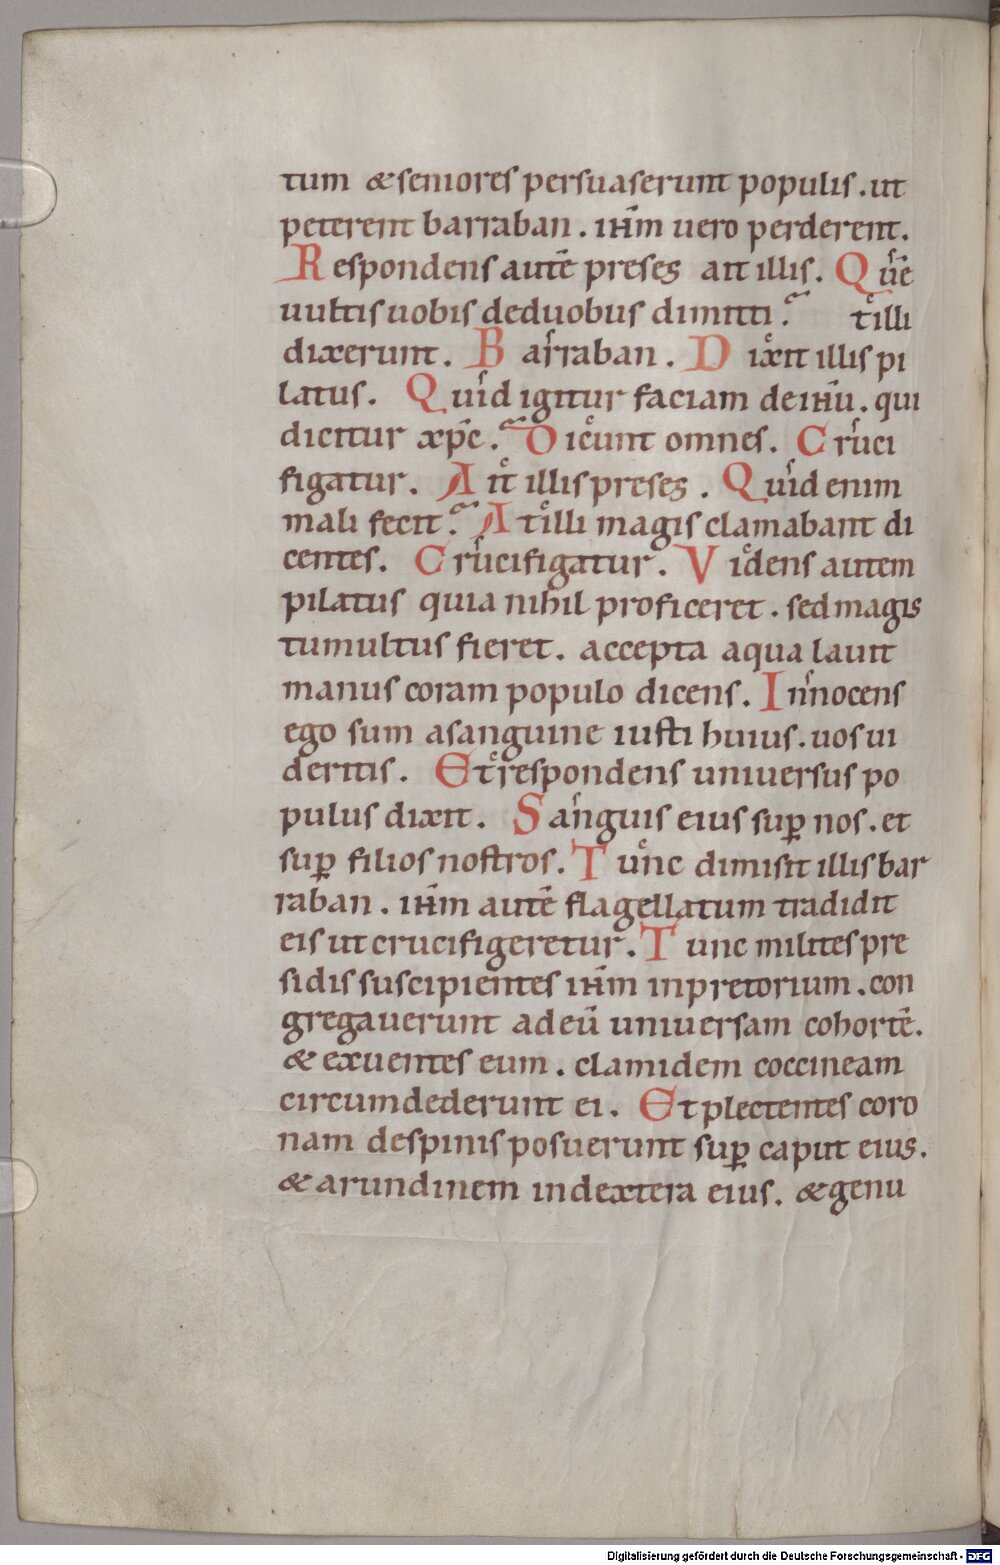 tum & seniores persuaserunt populis . ut
peterent barraban . ihm̄ vero perderent.
Respondens autē preses ait illis. Quē
vultis uobis deduobus dimitti? t illi
dixerunt. Barraban. Dixit illis pi
latus. Quid igitur faciam de ihū. qui
dicitur xp̄c.? Dicunt omnes. Cruci
figatur. Ait illis preses. Quid enim
mali fecit? At illi magis clamabant di
centes. Crucifigatur. Videns autem
pilatus quia nihil proficeret. sed magis
tumultus fieret. accepta aqua lauit
manus coram populo dicens. Innocens
ego sum asanguine iusti huius. uos ui
deritis. Et respondens universus po
pulus dixit. Sanguis eius sup̲ nos. et
sup̲ filios nostros. Tunc dimisit illis bar
raban. ihm̄ autē flagellatum tradidit
eis ut crucifigeretur. Tunc milites pre
sidis suscipientes ihm̄ inpretorium. con
gregaverunt ad eū universam cohortē.
& exuentes eum. clamidem coccineam
circumdederunt ei. Et plectentes coro
nam despinis posuerunt sup̲ caput eius.
& arundinem indextera eius. & genu
Digitalisierung gefördert durch die Deutsche Forschungsgemeinschaft - DFG